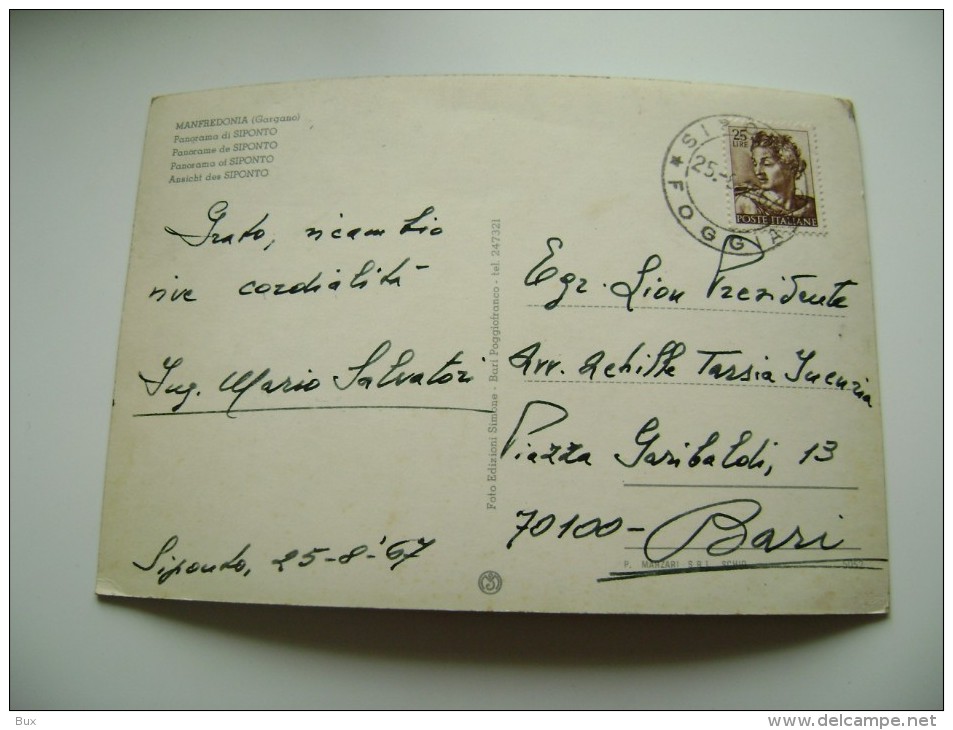 MANFREDONIA (Gargano)
Panorama di SIPONTO
Panorame de SIPONTO
Panorama of SIPONTO
Ansicht des SIPONTO
Grato, ricambio
vive cordialità
Ing. Mario Salvatori
Siponto, 25-8-'67
Foto Edizioni Simone - Bari Poggiofranco - tel. 247321
25
LIRE
POSTE ITALIANE
25.
★ FOGGIA
Egr. Lion Presidente
Avv. Achille Tarsia Incuria
Piazza Garibaldi, 13
70100 - Bari
P. MARZARI S.R.L. SCHIO
Bux
www.delcampe.net